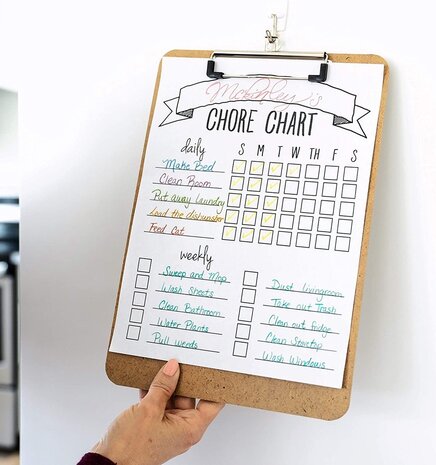 Mckinley's
CHORE CHART
daily S M T W TH F S
Make Bed
Clean Room
Put away laundry
Load the dishwasher
Feed Cat
weekly
Sweep and Mop
Wash Sheets
Clean Bathroom
Water Plants
Pull weeds
Dust livingroom
Take out Trash
Clean out fridge
Clean Stovetop
Wash Windows